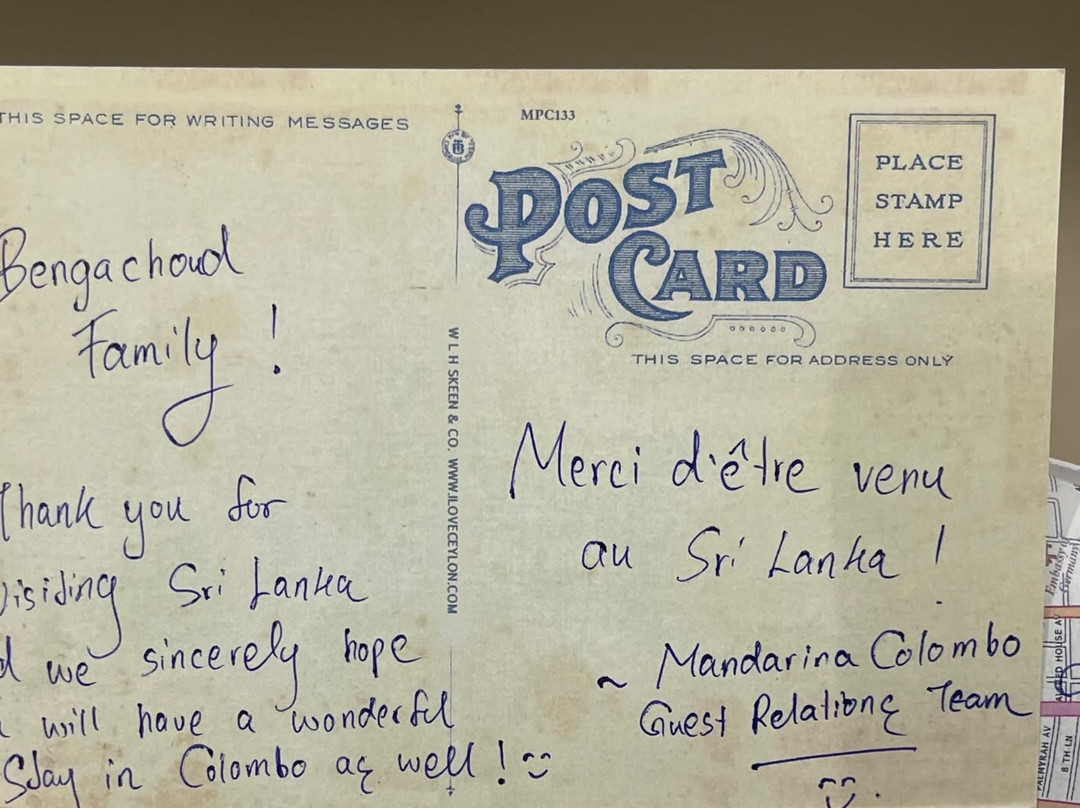 THIS SPACE FOR WRITING MESSAGES
Bengachoud
Family !
Thank you for
Visiding Sri Lanka
d we sincerely hope
will have a wonderful
Sday in Colombo as well !
W L H SKEEN & CO. WWW.ILOVECEYLON.COM
MPC133
POST
CARD
PLACE
STAMP
HERE
THIS SPACE FOR ADDRESS ONLY
Merci d'être venu
au Sri Lanka !
~ Mandarina Colombo
Guest Relations Team
Embassy
Germany
HOUSE AV
PALMYRAH AV
8 TH LN